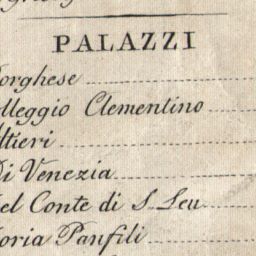 PALAZZI
orghese
lleggio Clementino
ltieri
Di Venezia
el Conte di S. Leu
oria Panfili